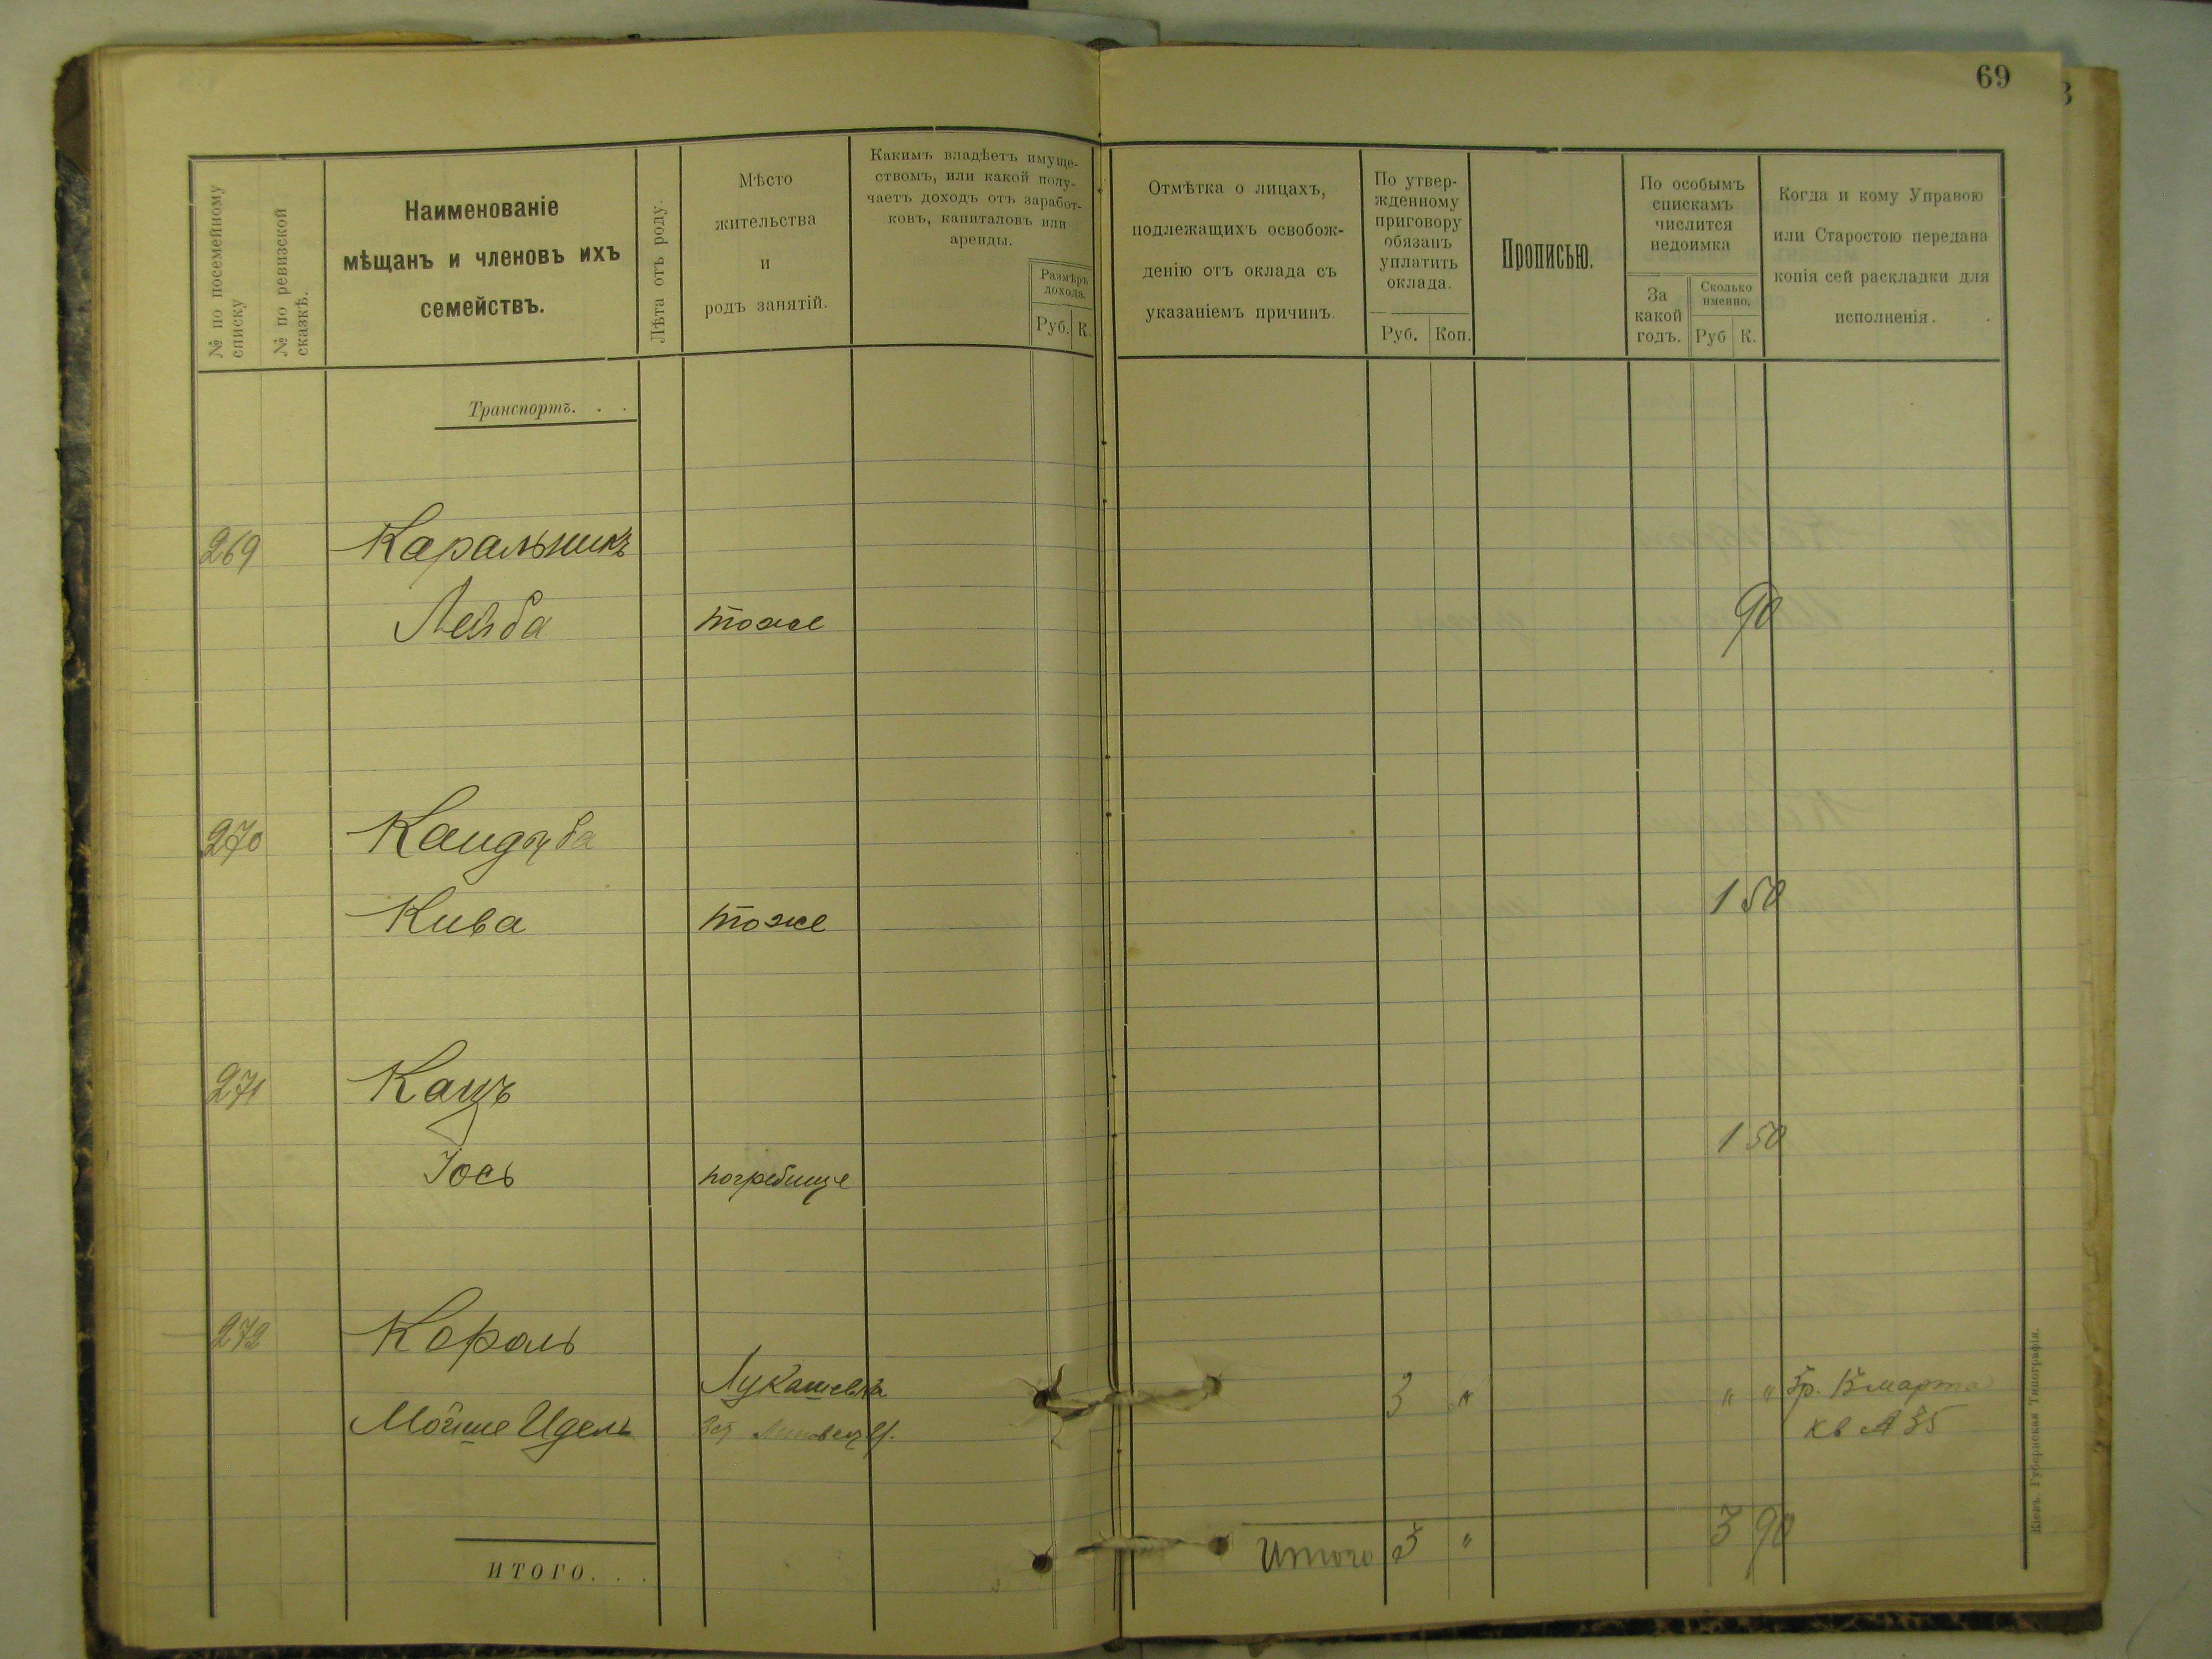 69
№ по посемейному списку
№ по ревизской сказкѣ.
Наименованіе
мѣщанъ и членовъ ихъ
семействъ.
Лѣта отъ роду.
Мѣсто
жительства
и
родъ занятій.
Какимъ владѣетъ имуще-
ствомъ, или какой полу-
чаетъ доходъ отъ заработ-
ковъ, капиталовъ или
аренды.
Размѣръ
дохода.
Руб. К.
Отмѣтка о лицахъ,
подлежащихъ освобож-
денію отъ оклада съ
указаніемъ причинъ.
По утвер-
жденному
приговору
обязанъ
уплатить
оклада.
Руб. Коп.
Прописью.
По особымъ
спискамъ
числится
недоимка
За
какой
годъ.
Сколько
именно.
Руб К.
Когда и кому Управою
или Старостою передана
копія сей раскладки для
исполненія.
Транспортъ. . .
269 Каральникъ
Лейба тоже 90
270 Кандуба
Кива тоже 1 50
271 Кацъ
Іось погребище 1 50
272 Король
Мойше Идель Лукашевка 3 " " " 3р. 13 марта
кв № 35
ИТОГО. . .
Итого 3 " 3 90
Кіевъ. Губернская Типографія.